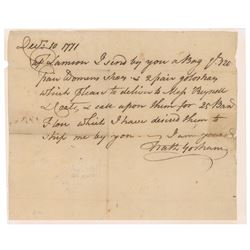 Decr 10 1771
Lamson I send by you a Bag of
pair Womens Shoes & 2 pair goloshoes
which please to deliver to Mess Trynell
& Coats, & call upon them for 25 Barr
Flour which I have desired them to
Ship me by you. I am yours
Nath Gorham